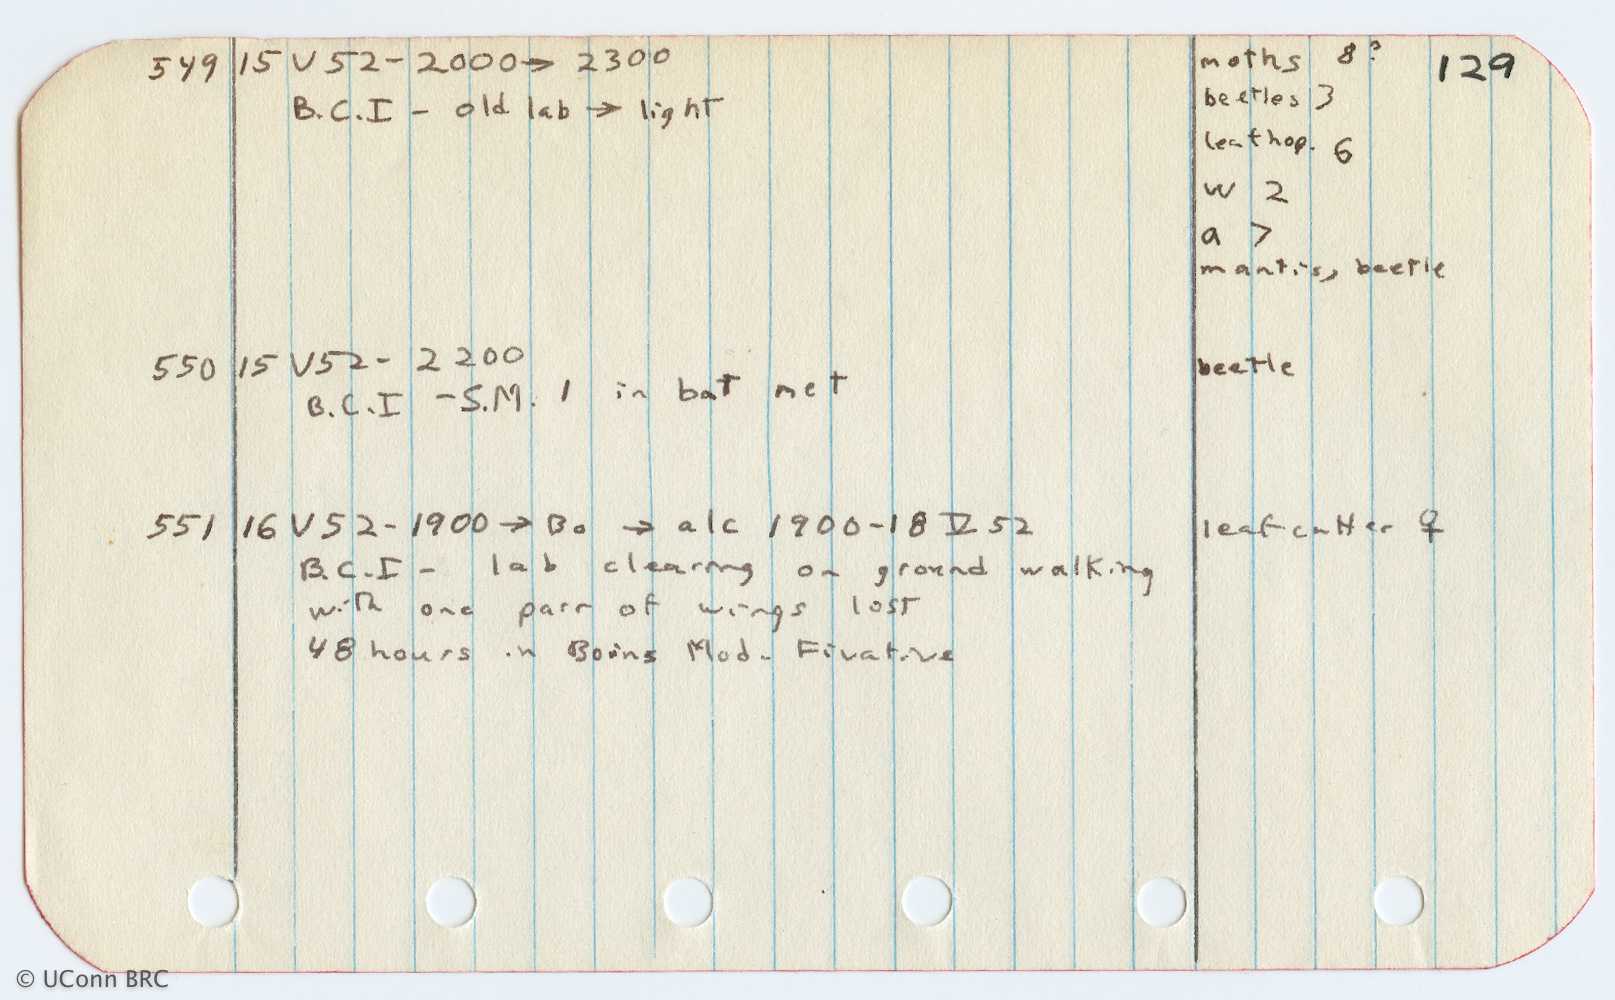 129
549 15 V 52 - 2000 → 2300 moths 8?
B.C.I - old lab → light beetles 3
leafhop. 6
w 2
a >
mantis, beetle
550 15 V 52 - 2200 beetle
B.C.I - S.M. 1 in bat net
551 16 V 52 - 1900 → Bo → alc 1900-18 V 52 leafcutter ♀
B.C.I - lab clearing on ground walking
with one pair of wings lost
48 hours in Boins Mod. Fixative
© UConn BRC